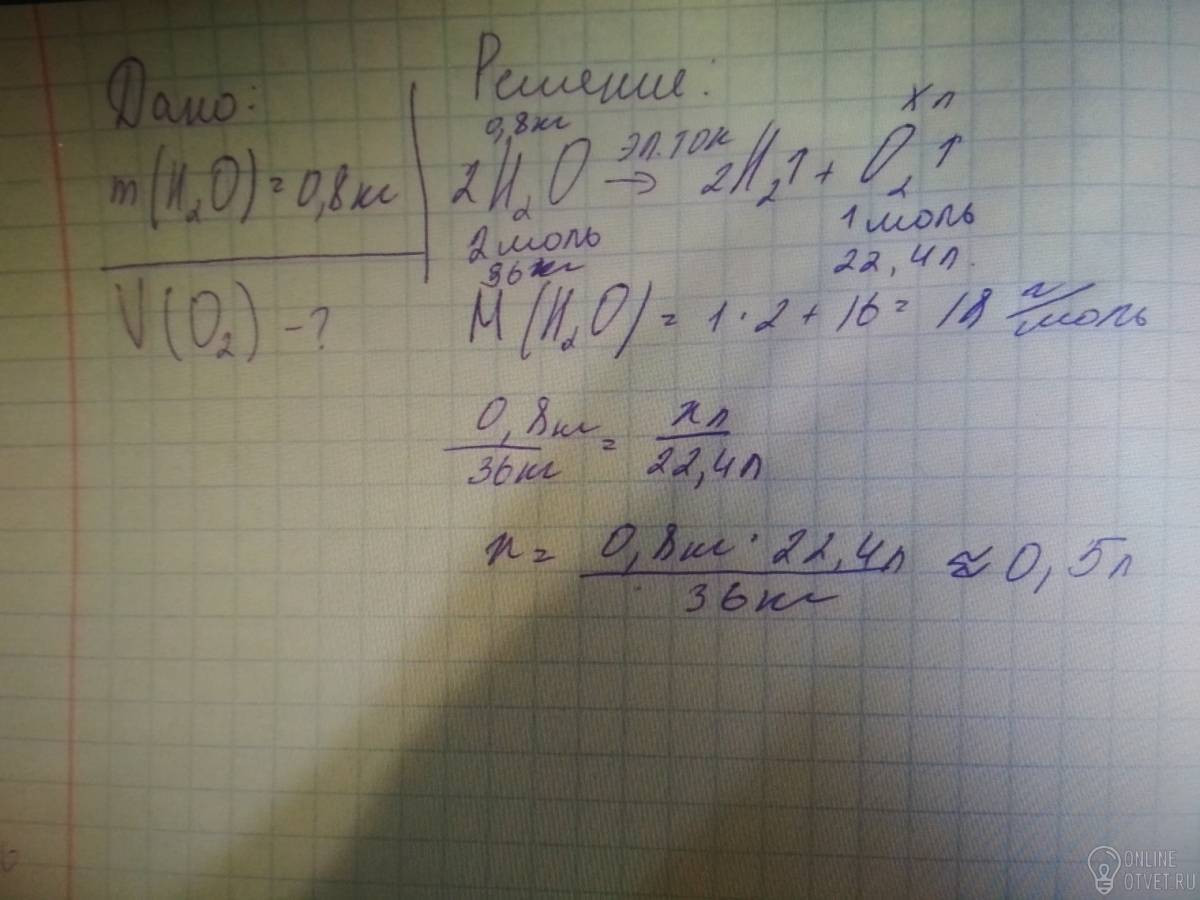 Дано:
m(H₂O)=0,8кг
V(O₂)-?
Решение:
0,8кг хл
2H₂O эл.ток → 2H₂↑ + O₂↑
2моль 1моль
36кг 22,4л.
M(H₂O)=1·2+16=18 г/моль
0,8кг/36кг = хл/22,4л
х= 0,8кг·22,4л/36кг ≈0,5л
ONLINE
OTVET.RU